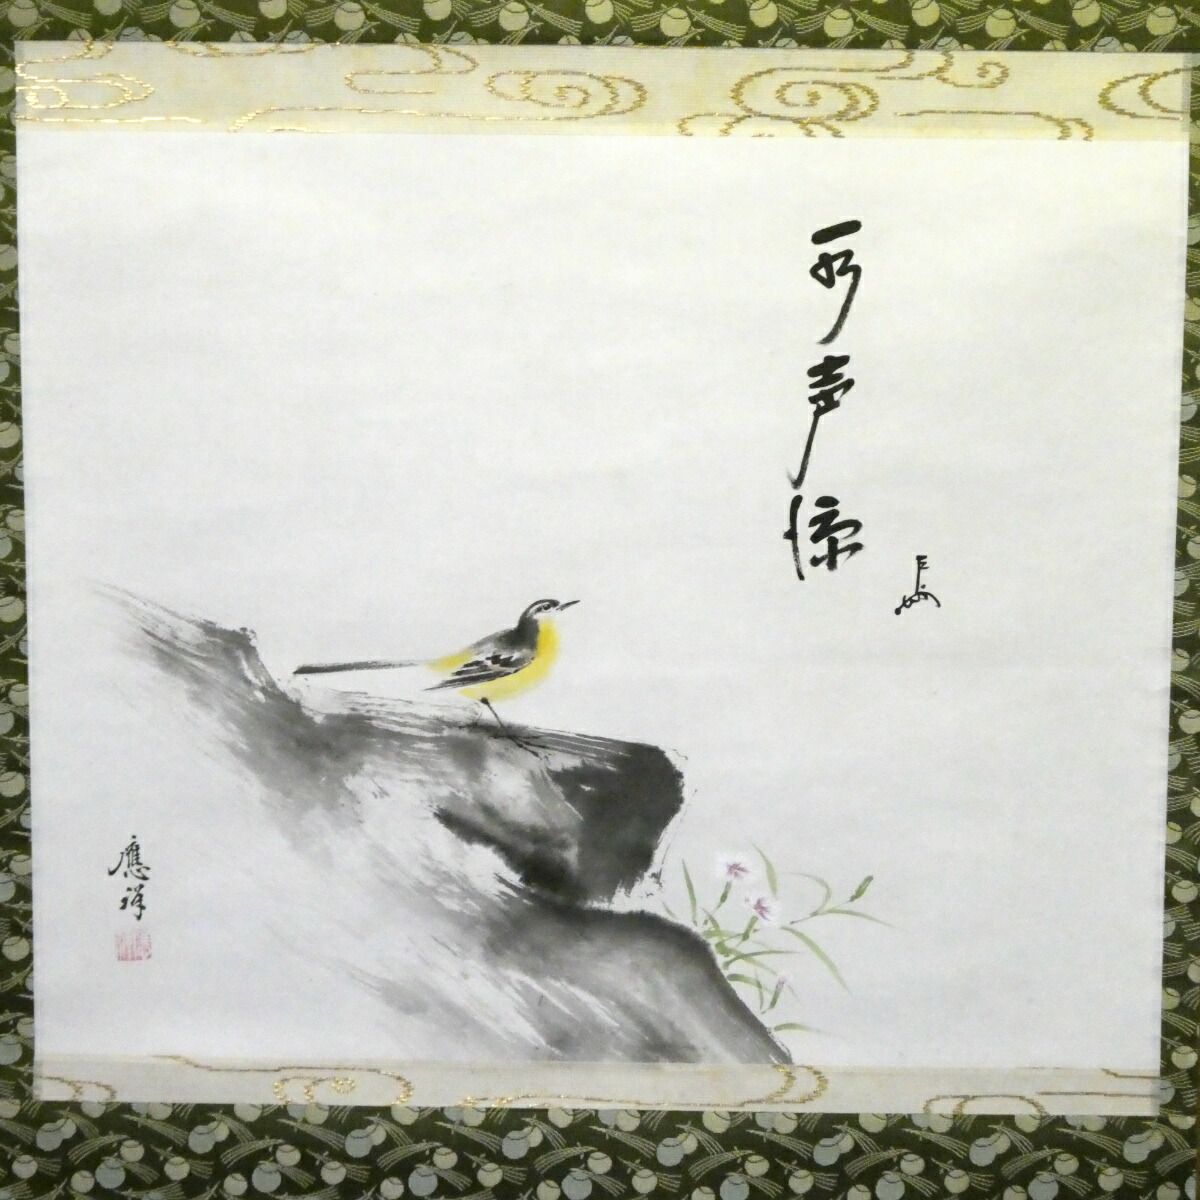 水声涼
應祥